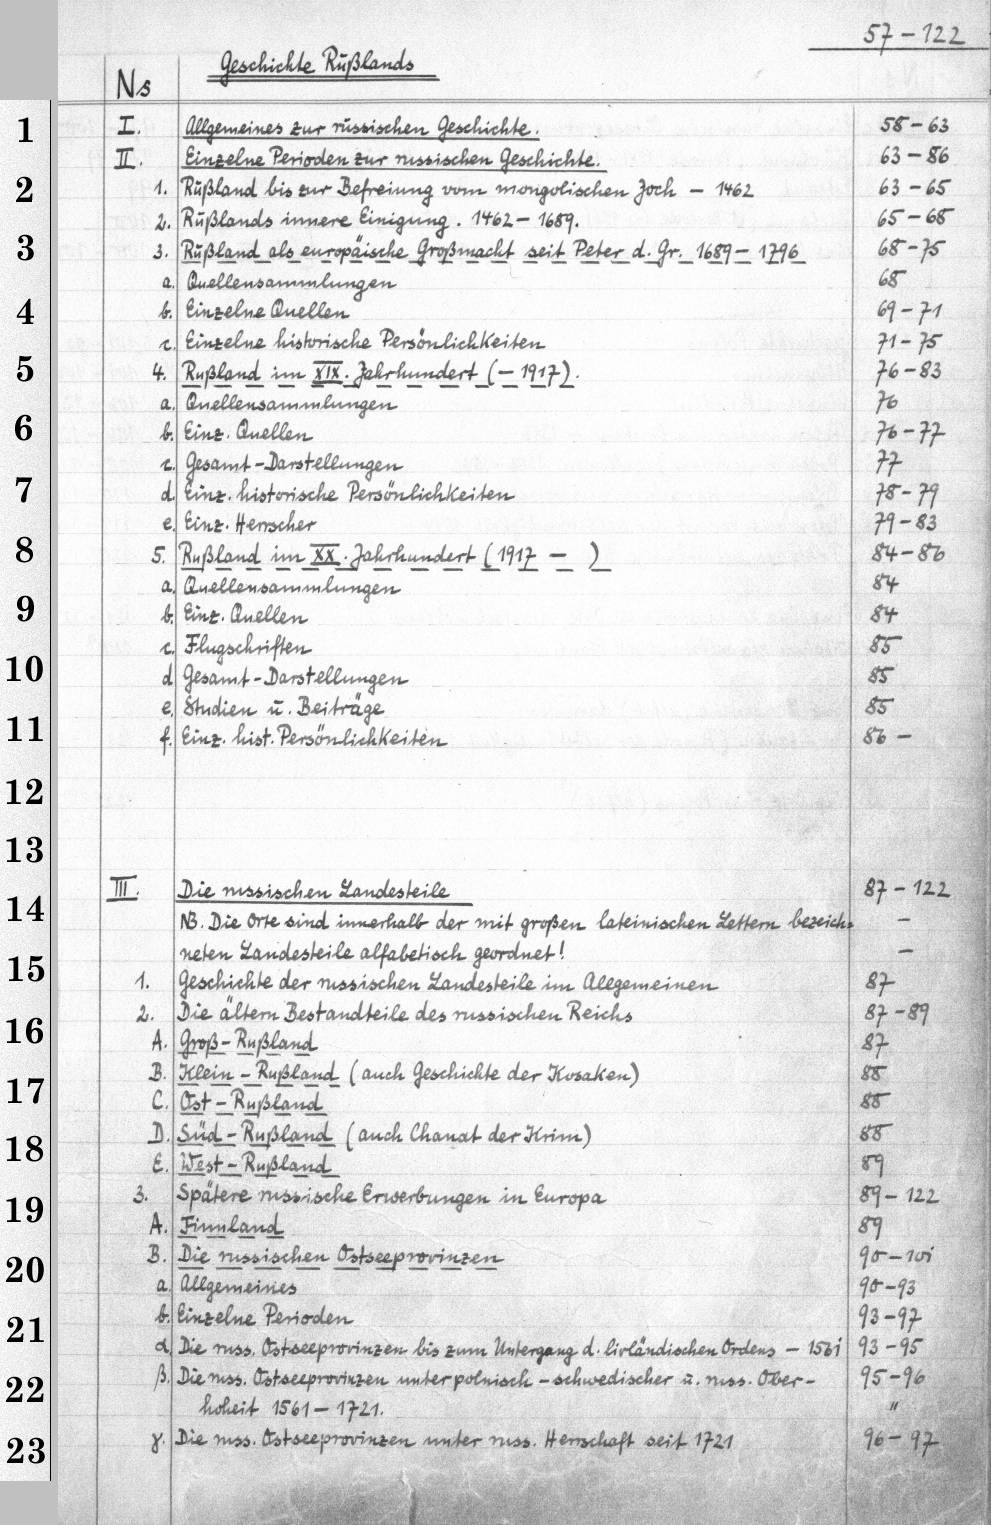 57-122
Ns Geschichte Rußlands
1 I. Allgemeines zur russischen Geschichte. 58-63
II. Einzelne Perioden zur russischen Geschichte. 63-86
2 1. Rußland bis zur Befreiung vom mongolischen Joch - 1462 63-65
2. Rußlands innere Einigung. 1462-1689. 65-68
3 3. Rußland als europäische Großmacht seit Peter d. Gr. 1689-1796 68-75
a. Quellensammlungen 68
4 b. Einzelne Quellen 69-71
c. Einzelne historische Persönlichkeiten 71-75
5 4. Rußland im XIX. Jahrhundert (-1917). 76-83
a. Quellensammlungen 76
6 b. Einz. Quellen 76-77
c. Gesamt-Darstellungen 77
7 d. Einz. historische Persönlichkeiten 78-79
e. Einz. Herrscher 79-83
8 5. Rußland im XX. Jahrhundert (1917 - ) 84-86
a. Quellensammlungen 84
9 b. Einz. Quellen 84
c. Flugschriften 85
10 d Gesamt-Darstellungen 85
e. Studien u. Beiträge 85
11 f. Einz. hist. Persönlichkeiten 86 -
12
13
III. Die russischen Landesteile 87-122
14 NB. Die Orte sind innerhalb der mit großen lateinischen Lettern bezeich= -
neten Landesteile alfabetisch geordnet! -
15 1. Geschichte der russischen Landesteile im Allgemeinen 87
2. Die ältern Bestandteile des russischen Reichs 87-89
16 A. Groß-Rußland 87
B. Klein-Rußland (auch Geschichte der Kosaken) 88
17 C. Ost-Rußland 88
D. Süd-Rußland (auch Chanat der Krim) 88
18 E. West-Rußland 89
3. Spätere russische Erwerbungen in Europa 89-122
19 A. Finnland 89
B. Die russischen Ostseeprovinzen 90-101
20 a. Allgemeines 90-93
21 b. Einzelne Perioden 93-97
α. Die russ. Ostseeprovinzen bis zum Untergang d. livländischen Ordens - 1561 93-95
22 β. Die russ. Ostseeprovinzen unter polnisch-schwedischer u. russ. Ober-
hoheit 1561-1721. 95-96
"
23 γ. Die russ. Ostseeprovinzen unter russ. Herrschaft seit 1721 96-97